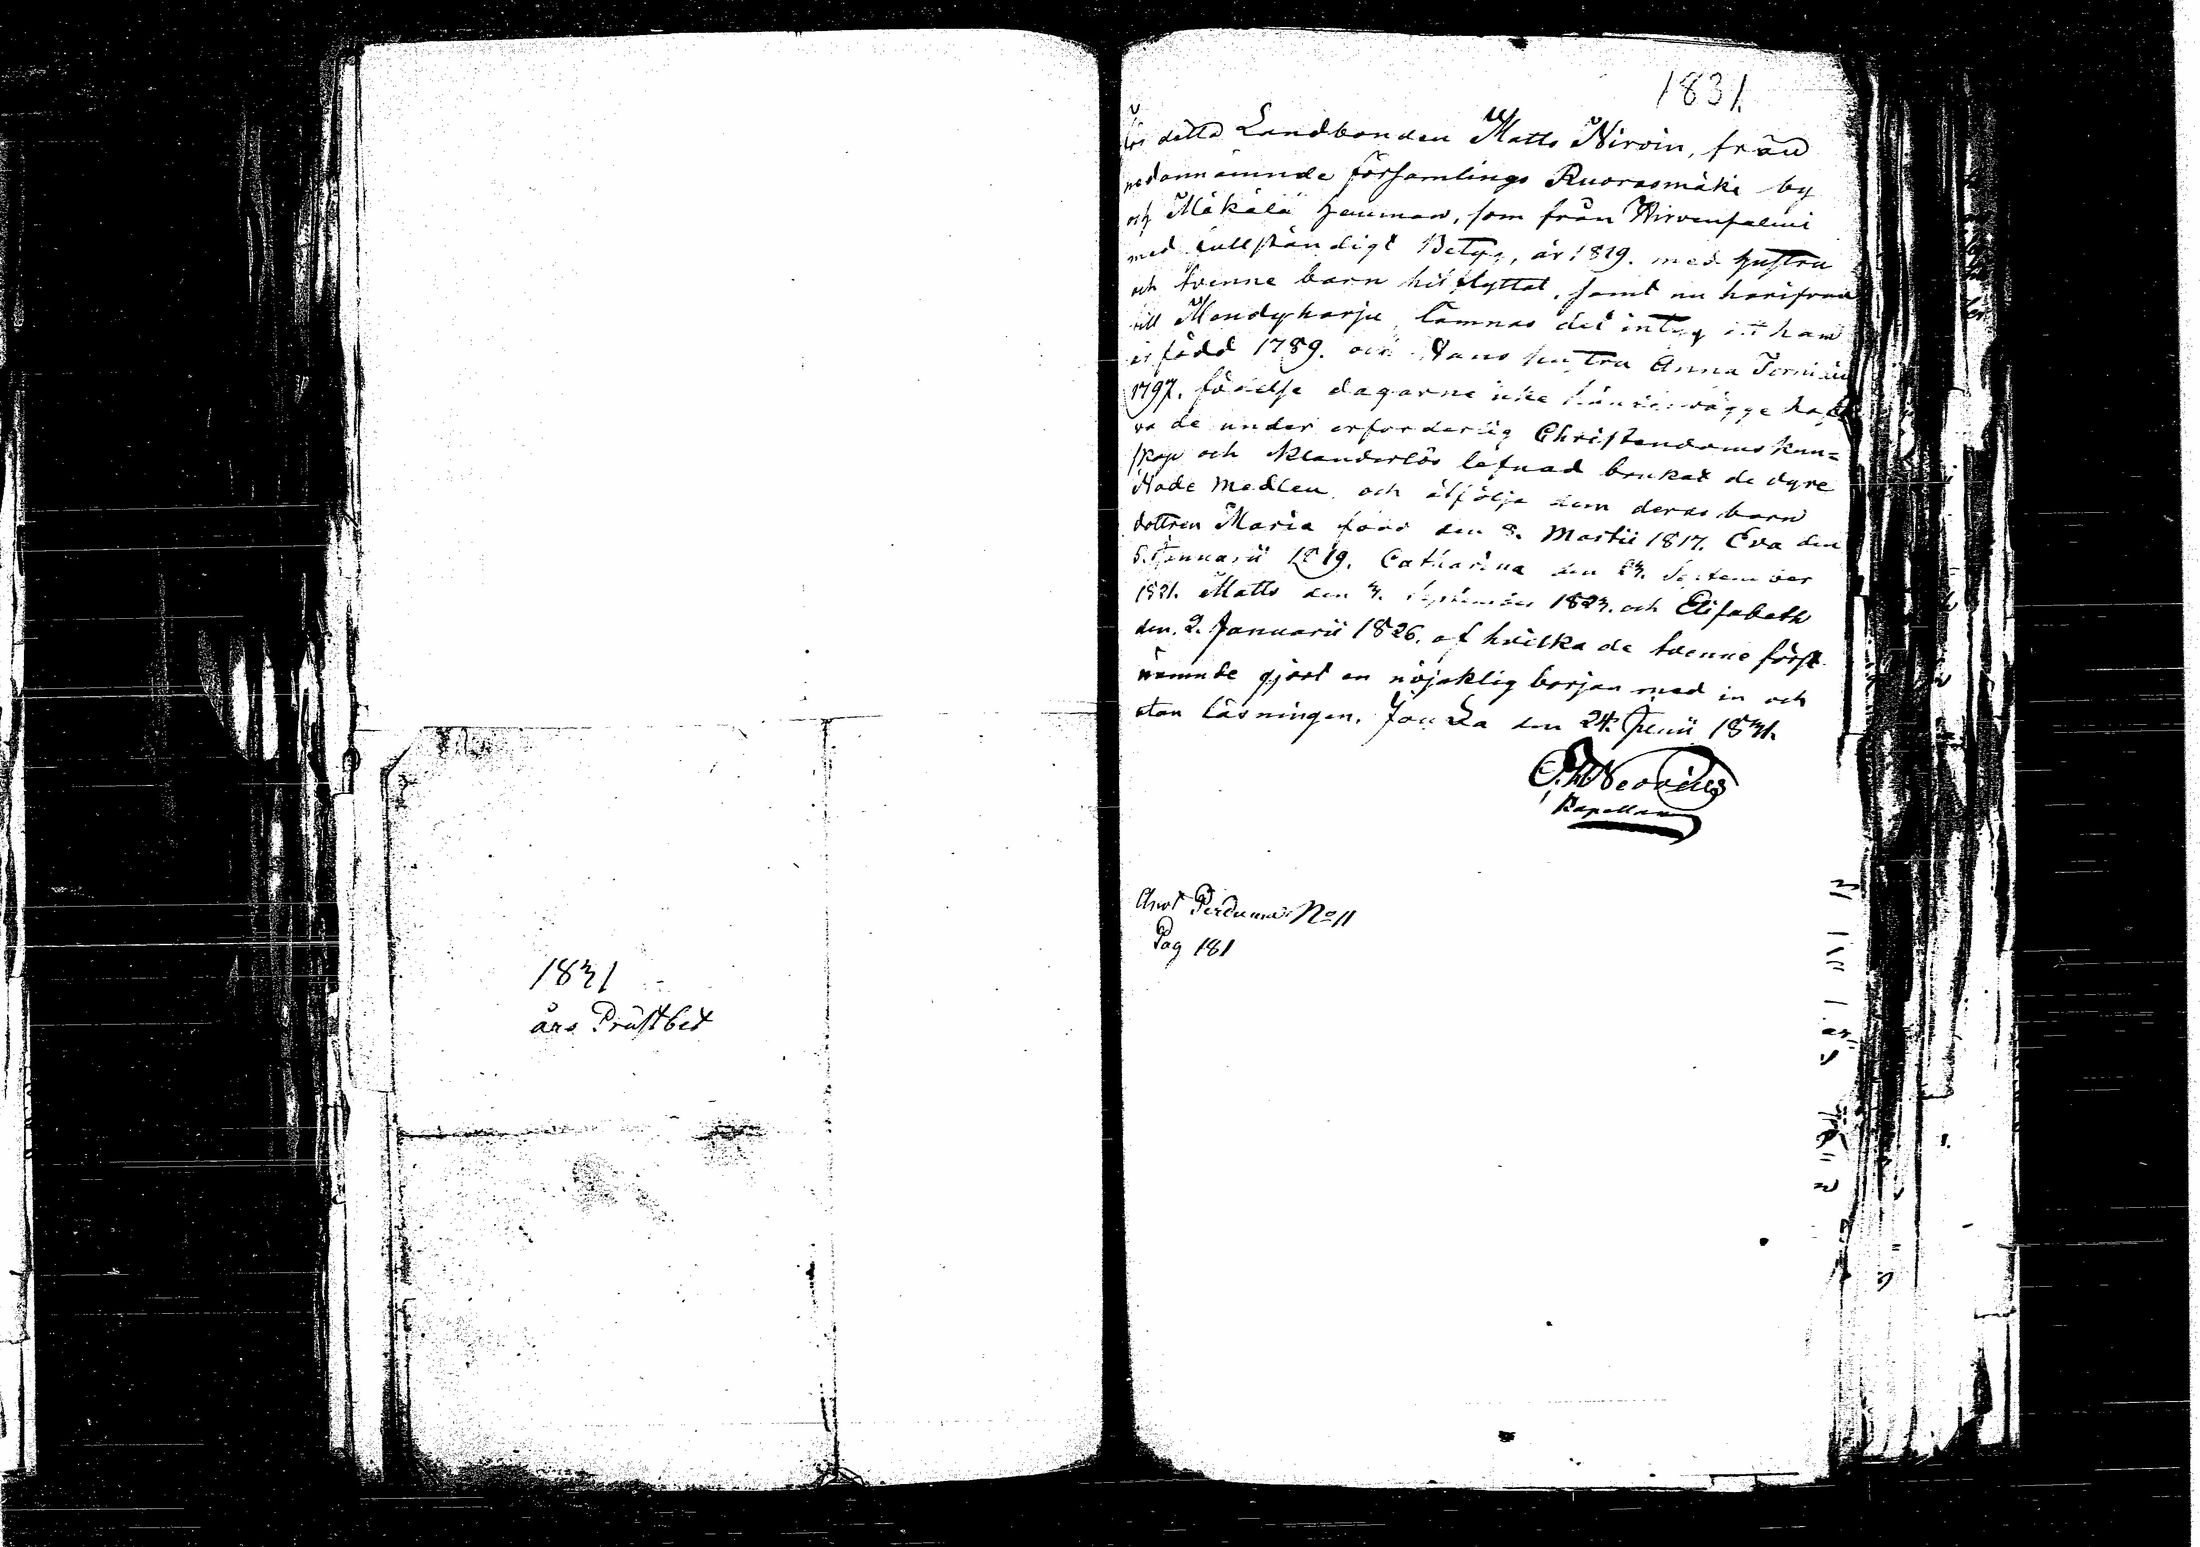 1831
års Prästbet
1831.
för detta Landbonden Matts Nirvin, från
nedannämnde församlings Ruorasmäki by
och Mäkälä hemman, som från Hirvensalmi
med fullständigt Betyg, år 1819. med hustru
och tvenne barn hitflyttat, samt nu härifrån
till Mendyharju, lämnas det intyg att han
är född 1789. och Hans hustru Anna
1797. födelse dagarne icke bägge haf
va de under erforderlig Christendoms kun=
skap och klanderlös lefnad brukat de dyre
Nåde Medlen, och åtfölja dem deras barn
dottren Maria född den 8. Martii 1817. Eva den
5. Januarii 1819. Catharina den 23. September
1821. Matts den 3. September 1823. och Elisabeth
den 2. Januarii 1826. af hvilka de tvenne först
nämnde gjort en nöjaktig början med in och
utan läsningen. Jou Sa den 24. Junii 1831.
Neovius
Kapellan
Anot No 11
Pag 181